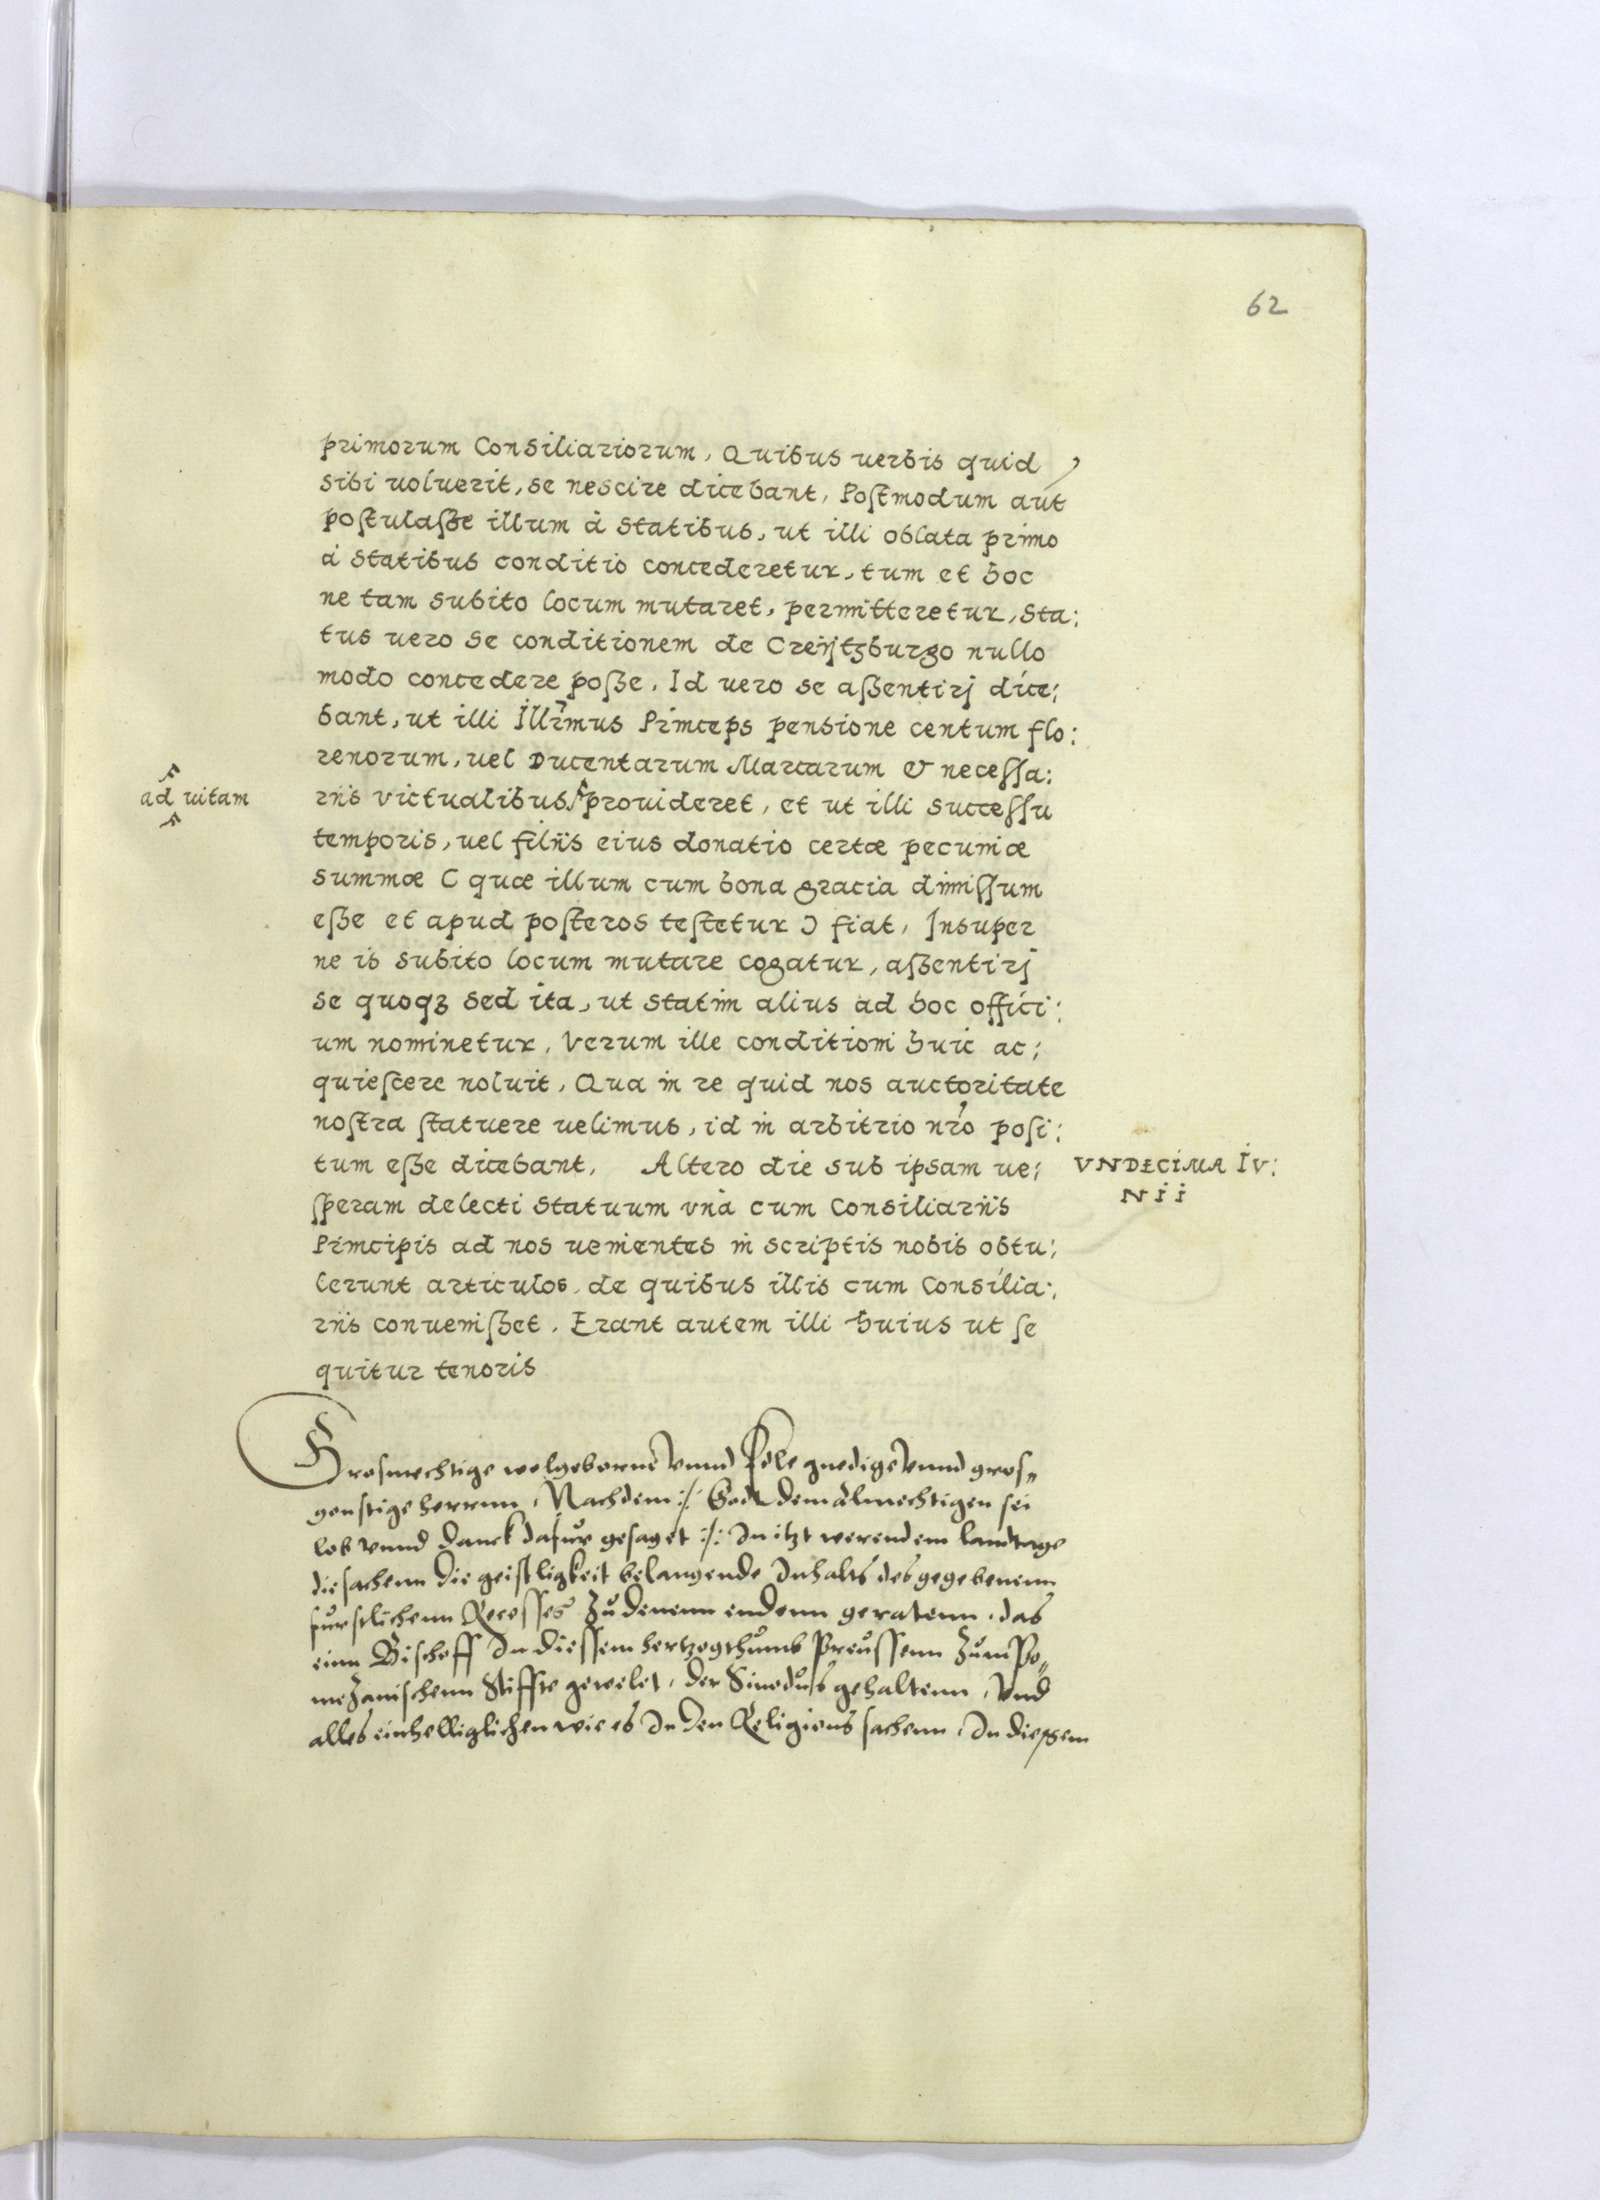 62
primorum Consiliariorum, Quibus uerbis quid
sibi uoluerit, se nescire dicebant, Postmodum aut
postulaße illum à Statibus, ut illi oblata primo
à Statibus conditio concederetur, tum et hoc
ne tam subito locum mutaret, permitteretur, Sta:
tus uero se conditionem de Creijtzburgo nullo
modo concedere poße. Id uero se aßentirj dice:
bant, ut illi Illr̃mus Princeps pensione centum flo:
renorum, uel Ducentarum Marcarum & necessa:
ad uitam
riis victualibus prouideret, et ut illi successu
temporis, uel filiis eius donatio certæ pecuniæ
summæ ( quæ illum cum bona gracia dimissum
eße et apud posteros testetur ) fiat, Insuper
ne is subito locum mutare cogatur, aßentirj
se quoqꝫ sed ita, ut statim alius ad hoc offici:
um nominetur, Verum ille conditioni huic ac:
quiescere noluit, Qua in re quid nos auctoritate
nostra statuere uelimus, id in arbitrio nr̃o posi:
tum eße dicebant. Altero die sub ipsam ue:
VNDECIMA IV:
NII
speram delecti Statuum vnà cum Consiliariis
Principis ad nos uenientes in scriptis nobis obtu:
lerunt articulos, de quibus illis cum Consilia:
riis conuenißet. Erant autem illi huius ut se
quitur tenoris
Grosmechtige wolgeborne vnnd Edle gnedige vnnd gros„
gonstige herrnn, Nachdem :/: Gott dem almechtigen sei
lob vnnd danck dafur gesaget :/: In itzt werendem landtage
die sachenn die geistligkeit belangende Inhalts des gegebenenn
furstlichenn Recesses zu denenn endenn geratenn, das
einn Bischoff In diessem hertzogthumb Preussenn zum Po„
mezanischenn Stiffte gewelet, der Sinodus gehaltenn, vnd
alles einhelliglichen wie es In den Religions sachenn, In dießem